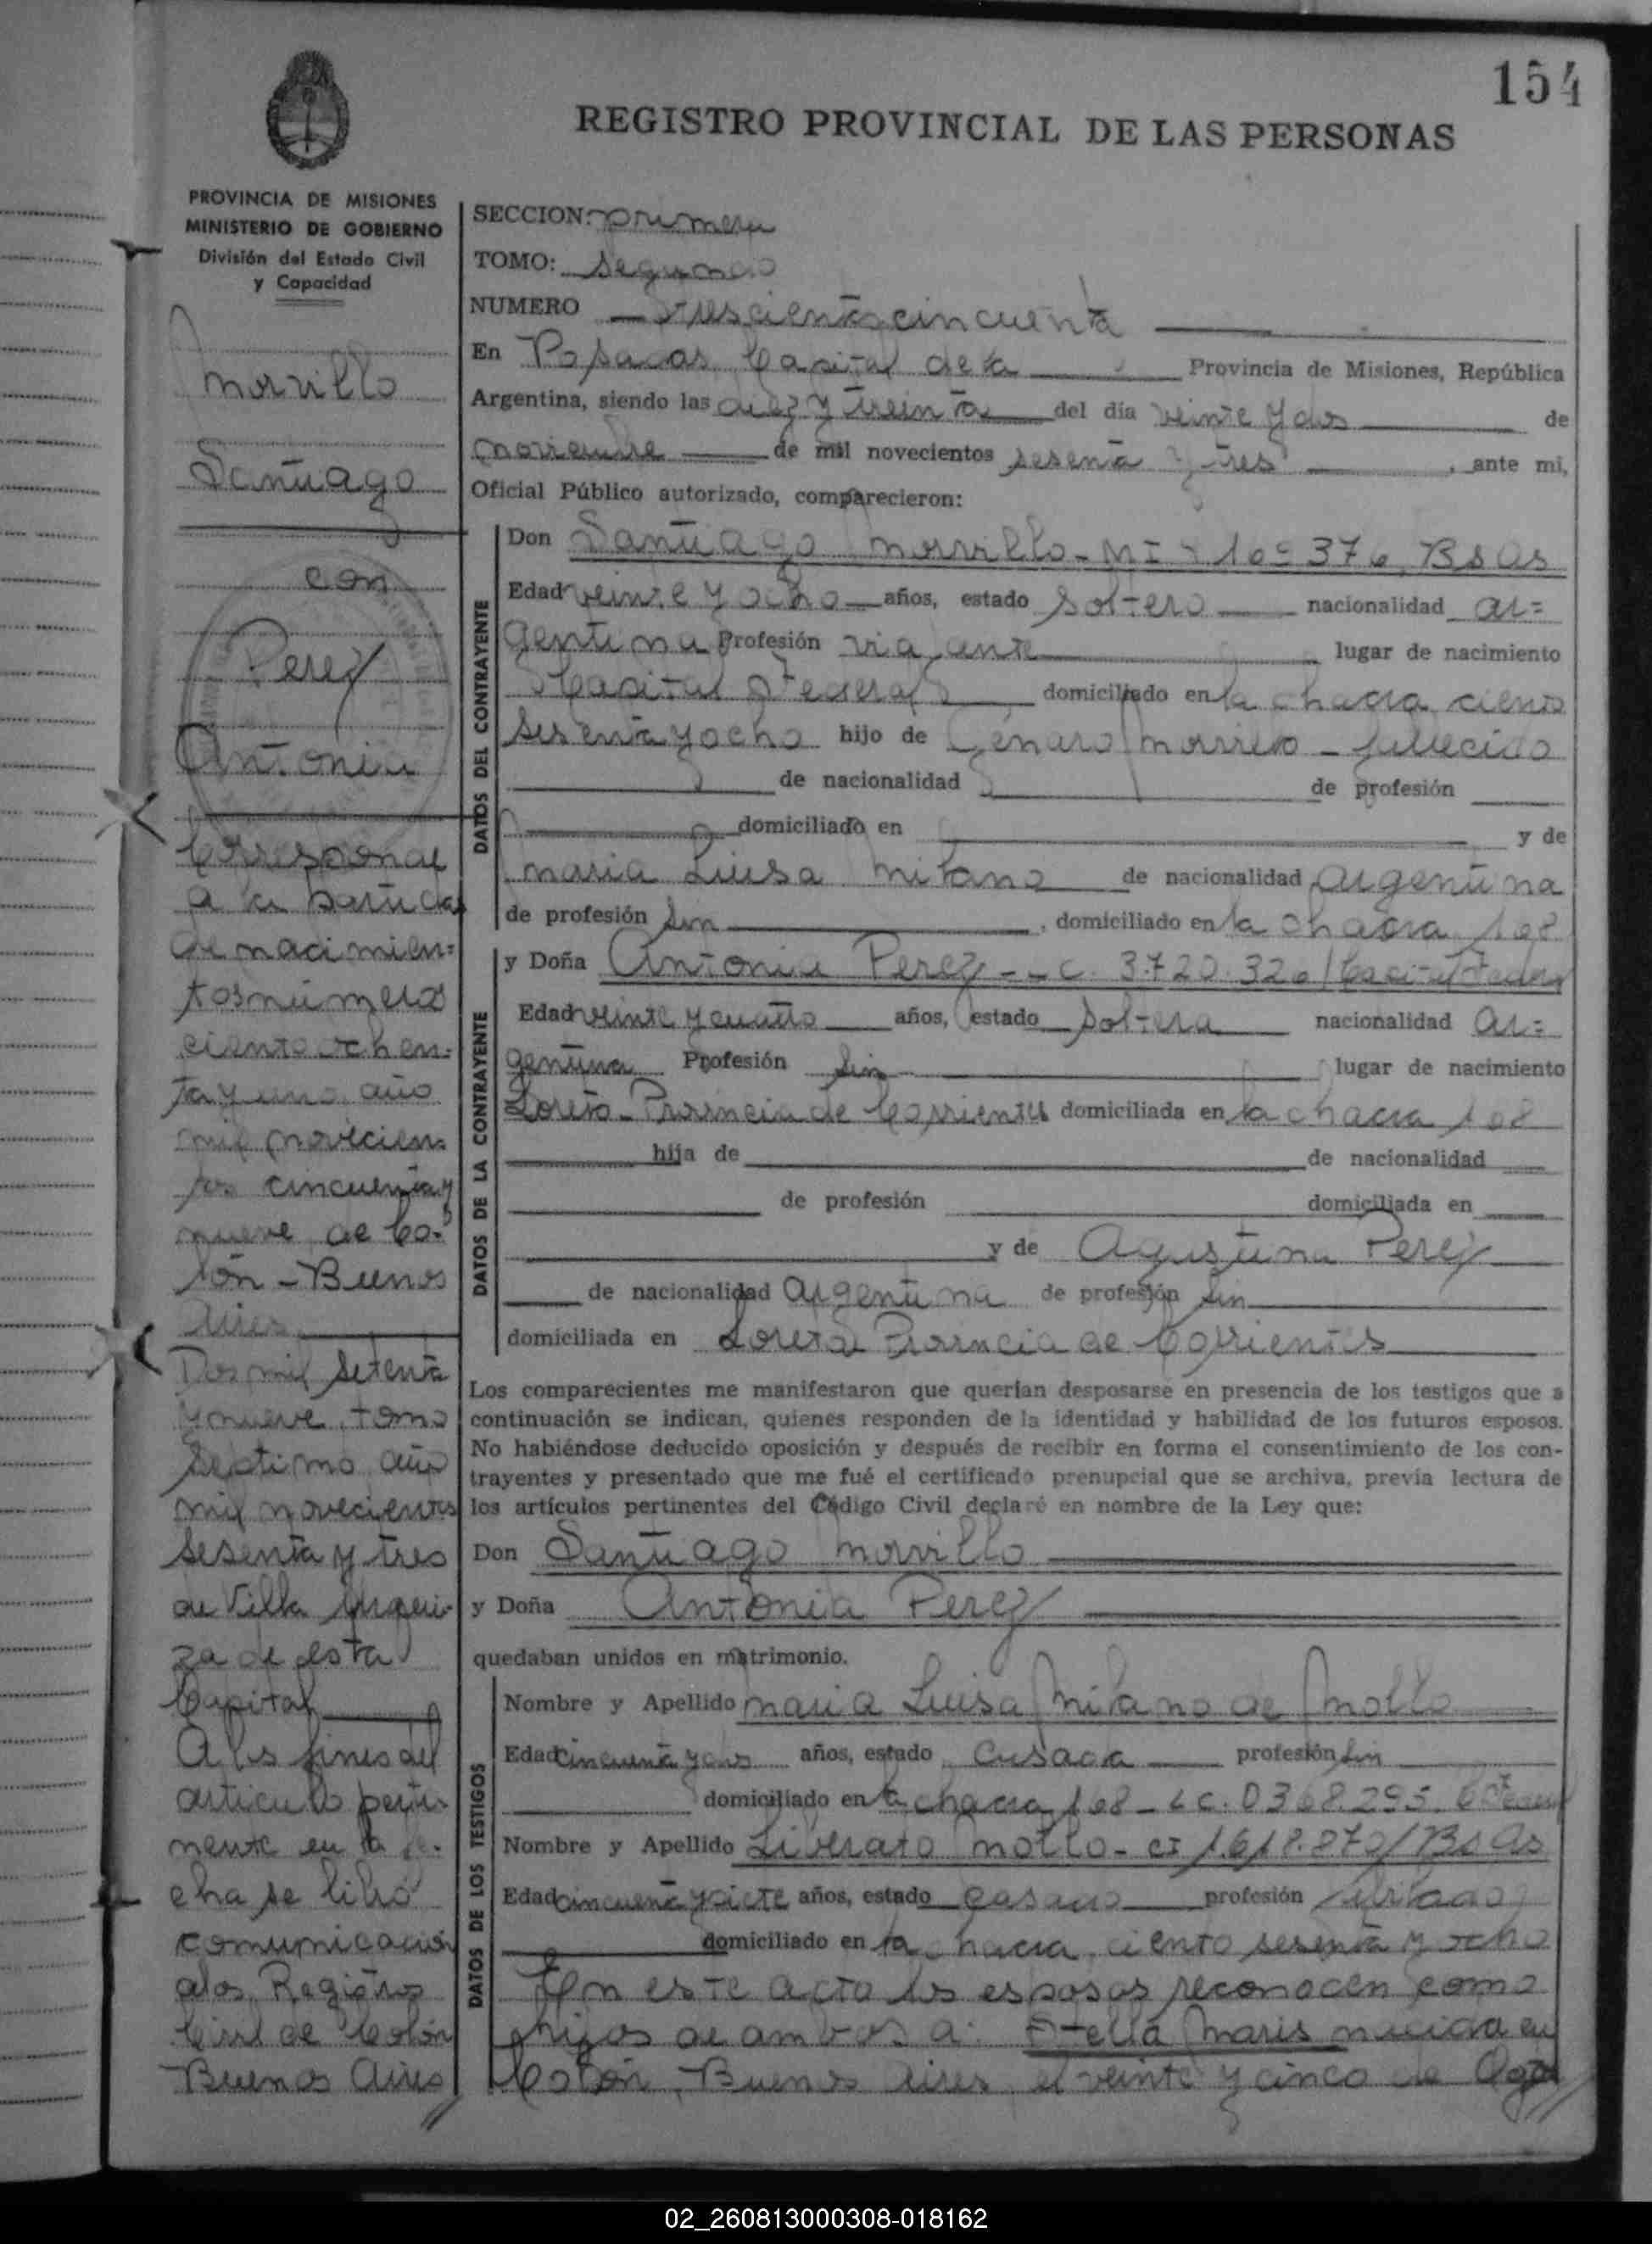 154
REGISTRO PROVINCIAL DE LAS PERSONAS
PROVINCIA DE MISIONES
MINISTERIO DE GOBIERNO
División del Estado Civil
y Capacidad
Morrillo
Santiago
con
Perez
Antonia
Corresponde
a la partida
de nacimien=
tos número
ciento ochen=
ta y uno año
mil novecien
tos cincuenta y
nueve de Co=
lón - Buenos
Aires
Dos mil setenta
y nueve tomo
Septimo año
mil novecientos
sesenta y tres
de Villa Urqui
za de esta
Capital
A los fines del
articulo perti
nente en la fe-
cha se libró
comunicación
a los Registros
Civil de Colón
Buenos Aires
SECCION: primera
TOMO: segundo
NUMERO trescientos cincuenta
En Posadas Capital de la Provincia de Misiones, República
Argentina, siendo las diez y treinta del día veinte y dos de
noviembre de mil novecientos sesenta y tres, ante mi,
Oficial Público autorizado, comparecieron:
DATOS DEL CONTRAYENTE
Don Santiago Morrillo - MI Bs As
Edad veinte y ocho años, estado soltero nacionalidad ar=
gentina Profesión viajante lugar de nacimiento
Capital Federal domiciliado en la chacra ciento
sesenta y ocho hijo de Genaro Morrillo - fallecido
de nacionalidad de profesión
domiciliado en y de
Maria Luisa Milano de nacionalidad argentina
de profesión sin, domiciliado en la chacra 168
DATOS DE LA CONTRAYENTE
y Doña Antonia Perez - C. 3.720.320 / Capital Federal
Edad veinte y cuatro años, estado soltera nacionalidad ar=
gentina Profesión sin lugar de nacimiento
Loreto - Provincia de Corrientes domiciliada en la chacra 168
hija de de nacionalidad
de profesión domiciliada en
y de Agustina Perez
de nacionalidad argentina de profesión sin
domiciliada en Loreto Provincia de Corrientes
Los comparecientes me manifestaron que querían desposarse en presencia de los testigos que a
continuación se indican, quienes responden de la identidad y habilidad de los futuros esposos.
No habiéndose deducido oposición y después de recibir en forma el consentimiento de los con-
trayentes y presentado que me fué el certificado prenupcial que se archiva, previa lectura de
los artículos pertinentes del Código Civil declaré en nombre de la Ley que:
Don Santiago Morrillo
y Doña Antonia Perez
quedaban unidos en matrimonio.
DATOS DE LOS TESTIGOS
Nombre y Apellido Maria Luisa Milano de Mollo
Edad cincuenta y dos años, estado casada profesión sin
domiciliado en la chacra 168 - LC. 0368.295
Nombre y Apellido Liberato Mollo - CI 1.618.870 / Bs As
Edad cincuenta y siete años, estado casado profesión jubilado
domiciliado en la chacra ciento sesenta y ocho
En este acto los esposos reconocen como
hijos de ambos a: Stella Maris nacida en
Colón, Buenos Aires el veinte y cinco de Agos
02_260813000308-018162